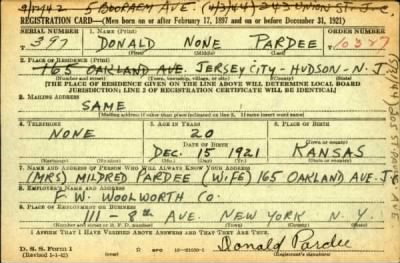 9/12/42 5 BOORAEM AVE. (4/3/44) 243 UNION ST. J-C
REGISTRATION CARD—(Men born on or after February 17, 1897 and on or before December 31, 1921)
SERIAL NUMBER 1. NAME (Print) ORDER NUMBER
397 DONALD NONE PARDEE 10327
(First) (Middle) (Last)
2. PLACE OF RESIDENCE (Print)
165 OAKLAND AVE. JERSEY CITY - HUDSON - N. J.
(Number and street) (Town, township, village, or city) (County) (State)
[THE PLACE OF RESIDENCE GIVEN ON THE LINE ABOVE WILL DETERMINE LOCAL BOARD
JURISDICTION; LINE 2 OF REGISTRATION CERTIFICATE WILL BE IDENTICAL]
3. MAILING ADDRESS
SAME
[Mailing address if other than place indicated on line 2. If same insert word same]
4. TELEPHONE 5. AGE IN YEARS 6. PLACE OF BIRTH
NONE 20
DATE OF BIRTH (Town or county)
DEC. 15 1921 KANSAS
(Exchange) (Number) (Mo.) (Day) (Yr.) (State or country)
7. NAME AND ADDRESS OF PERSON WHO WILL ALWAYS KNOW YOUR ADDRESS
(MRS) MILDRED PARDEE (WIFE) 165 OAKLAND AVE. J-C
8. EMPLOYER'S NAME AND ADDRESS
F. W. WOOLWORTH CO.
9. PLACE OF EMPLOYMENT OR BUSINESS
111 - 8th AVE. NEW YORK N. Y.
(Number and street or R. F. D. number) (Town) (County) (State)
I AFFIRM THAT I HAVE VERIFIED ABOVE ANSWERS AND THAT THEY ARE TRUE.
D. S. S. Form 1
(Revised 1-1-42)
Donald Pardee
(Registrant's signature)